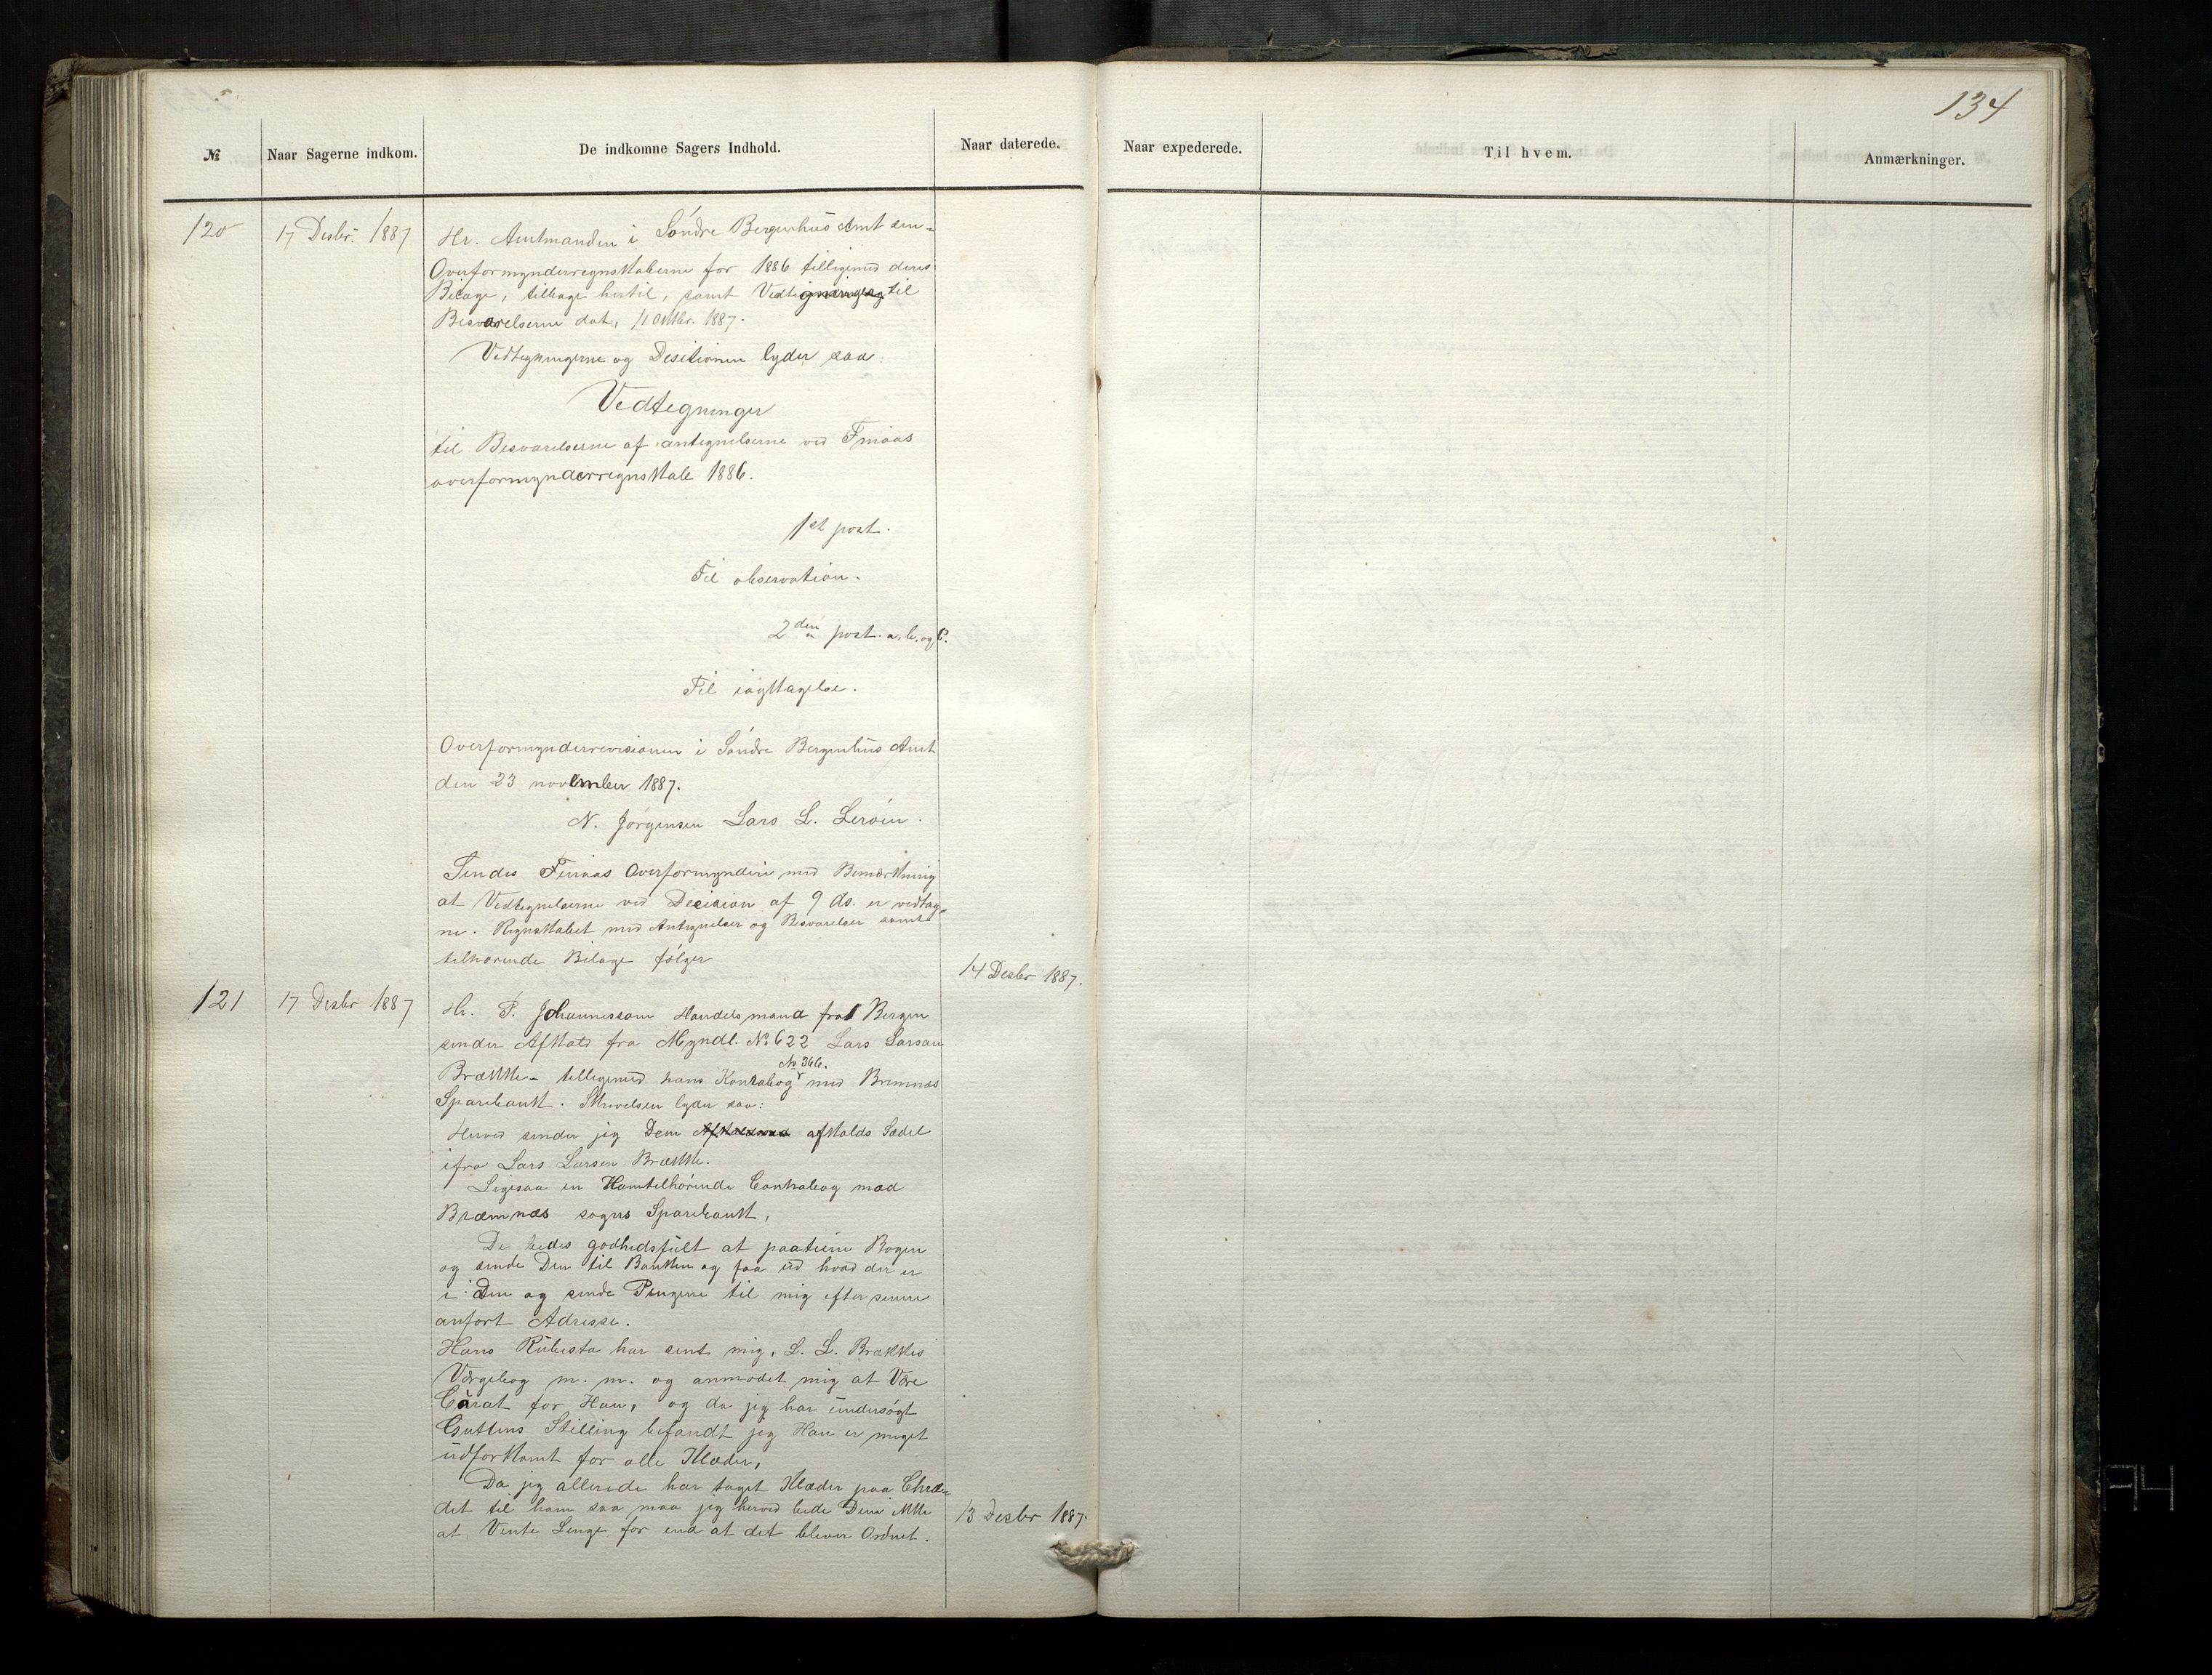 134
№ Naar Sagerne indkom. De indkomne Sagers Indhold. Naar daterede. Naar expederede. Til hvem. Anmærkninger.
120 17 Desbr. 1887 Hr. Amtmanden i Söndre Bergenhus Amt sen-
Overformynderregnskaberne for 1886 tilligemed deres
Bilage, tilbage hertil, samt Vedtegninger til
Besvarelserne dat. 11 Oktbr. 1887.
Vedtegningerne og Desitionen lyder saa:
Vedtegninger
til Besvarelserne af antegnelserne ved Finaas
overformynderregnskab 1886.
1st post.
Til observation.
2den post. a, b, og C.
Til iagttagelse.
Overformynderrevisionen i Söndre Bergenhus Amt
den 23 november 1887.
N. Jörgensen Lars L. Leröen.
Sendes Finaas Overformynderi med Bemærkning
at Vedtegnelserne ved Decision af 9 ds. er vedtag-
ne. Regnskabet med Antegnelser og Besvarelser samt
tilhorende Bilage fölger
14 Desbr 1887.
121 17 Desbr 1887 Hr. P. Johannessom Handelsmand fra Bergen
sender Afkald fra Myndl. No 622 Lars Larsen
No 366.
Brække - tilligemed hans Kontrabog med Bremnæs
Sparebank. Skrivelsen lyder saa:
Herved sender jig Dem afkalds Sædel
ifra Lars Larsen Brække.
Ligesaa en Hamtelhörende Contrabog med
Bræmnæs sogns Sparebank,
De bedes godhedsfult at paateine Bogen
og sende Den til Banken og faa ud hvad der er
i Den og sende Pengene til mig efter senere
anfort Adresse.
Hans Rubesta har sent mig, L. L. Brækkes
Værgebog m. m. og anmodet mig at Være
Curat for Han, og da jig har undersögt
Guttens Stilling befandt jig Han er muget
udforkomt for alle Klæder,
Da jig allerede har taget Klæder paa Chræ-
det til ham saa maa jig herved bede Dem ikke
at Vente Lenge for end at det bliver Ordnet.
13 Desbr 1887.